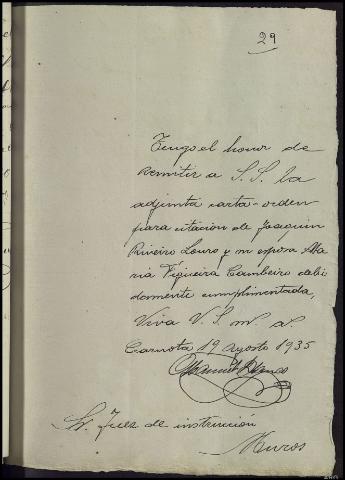 29
Tengo el honor de
Remitir a S. S. la
adjunta carta-orden
para citacion de Joaquin
Riveiro Louro y su esposa Ma
ria Figueira Cambeiro debi
damente cumplimentada,
Viva V. S. m. a.
Carnota 19 agosto 1935
Manuel
Sr. Juez de instrucción
Muros